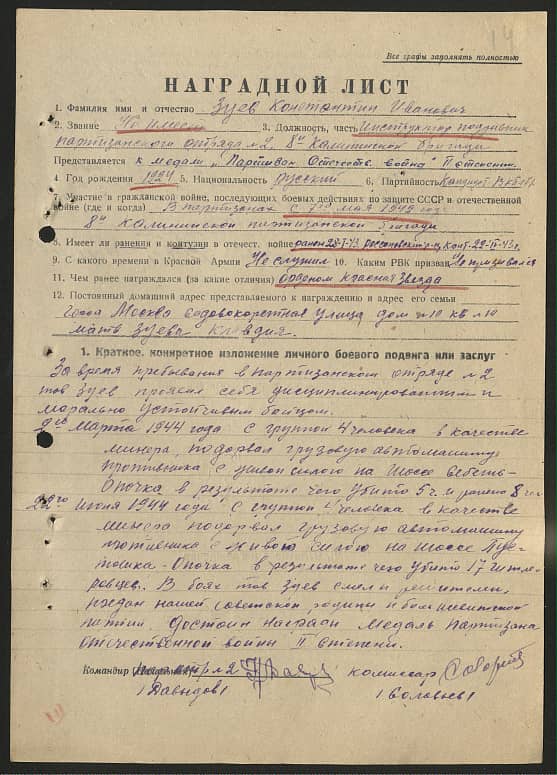 14
Все графы заполнять полностью
НАГРАДНОЙ ЛИСТ
1. Фамилия имя и отчество Зуев Константин Иванович
2. Звание Не имеет 3. Должность, часть Инструктор подрывник
партизанского отряда №2 8й Калининской бригады
Представляется к медали „Партизан Отечеств. война" II степени.
4. Год рождения 1924 5. Национальность русский 6. Партийность Кандидат ВКП(б)
7. Участие в гражданской войне, последующих боевых действиях по защите СССР и отечественной
войне (где и когда) В партизанах с мая 1942 год
8й Калининской партизанской бригады
8. Имеет ли ранения и контузии в отечест. войне ранен
9. С какого времени в Красной Армии Не служил 10. Каким РВК призван Не призывался
11. Чем ранее награждался (за какие отличия) орденом Красная Звезда
12. Постоянный домашний адрес представляемого к награждению и адрес его семьи
город Москва садовокаретная улица дом №10 кв №10
мать Зуева Клавдия.
1. Краткое, конкретное изложение личного боевого подвига или заслуг
За время пребывания в партизанском отряде №2
тов Зуев проявил себя дисциплинированным и
морально устойчивым бойцом.
марта 1944 года с группой 4 человека в качестве
минера, подорвал грузовую автомашину
противника с живой силой на шоссе
Опочка в результате чего убито 5 ч. и ранено 8 чел
22го июня 1944 года с группой человека в качестве
минера подорвал грузовую автомашину
противника с живой силой на шоссе Пус-
тошка - Опочка в результате чего убито 17 гитле-
ровцев. В боях тов Зуев смел и решителен,
предан нашей советской родины и большевистской
партии. Достоин награды Медаль партизана
отечественной войны II степени.
Командир отр №2 комиссар
/Давыдов/ /Соловьев/